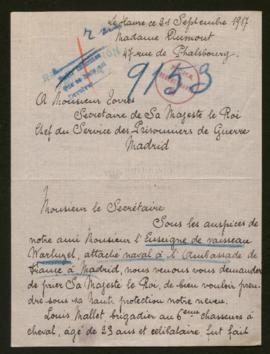 Le Havre ce 21 Septembre 1917
Madame Dumont
47 rue de Phalsbourg
9153
A Monsieur Torres
Secretaire de Sa Majeste le Roi
Chef du Service des Prisonniers de Guerre
Madrid
Monsieur le Secrétaire
Sous les auspices de
notre ami Monsieur l'Enseigne de vaisseau
Warluzel, attaché naval à l'Ambassade de
France à Madrid, nous venons vous demander
de prier Sa Majeste le Roi, de bien vouloir pren-
dre sous sa haute protection notre neveu.
Louis Mallet brigadier au 6eme chasseurs à
cheval, âgé de 23 ans et célibataire fut fait